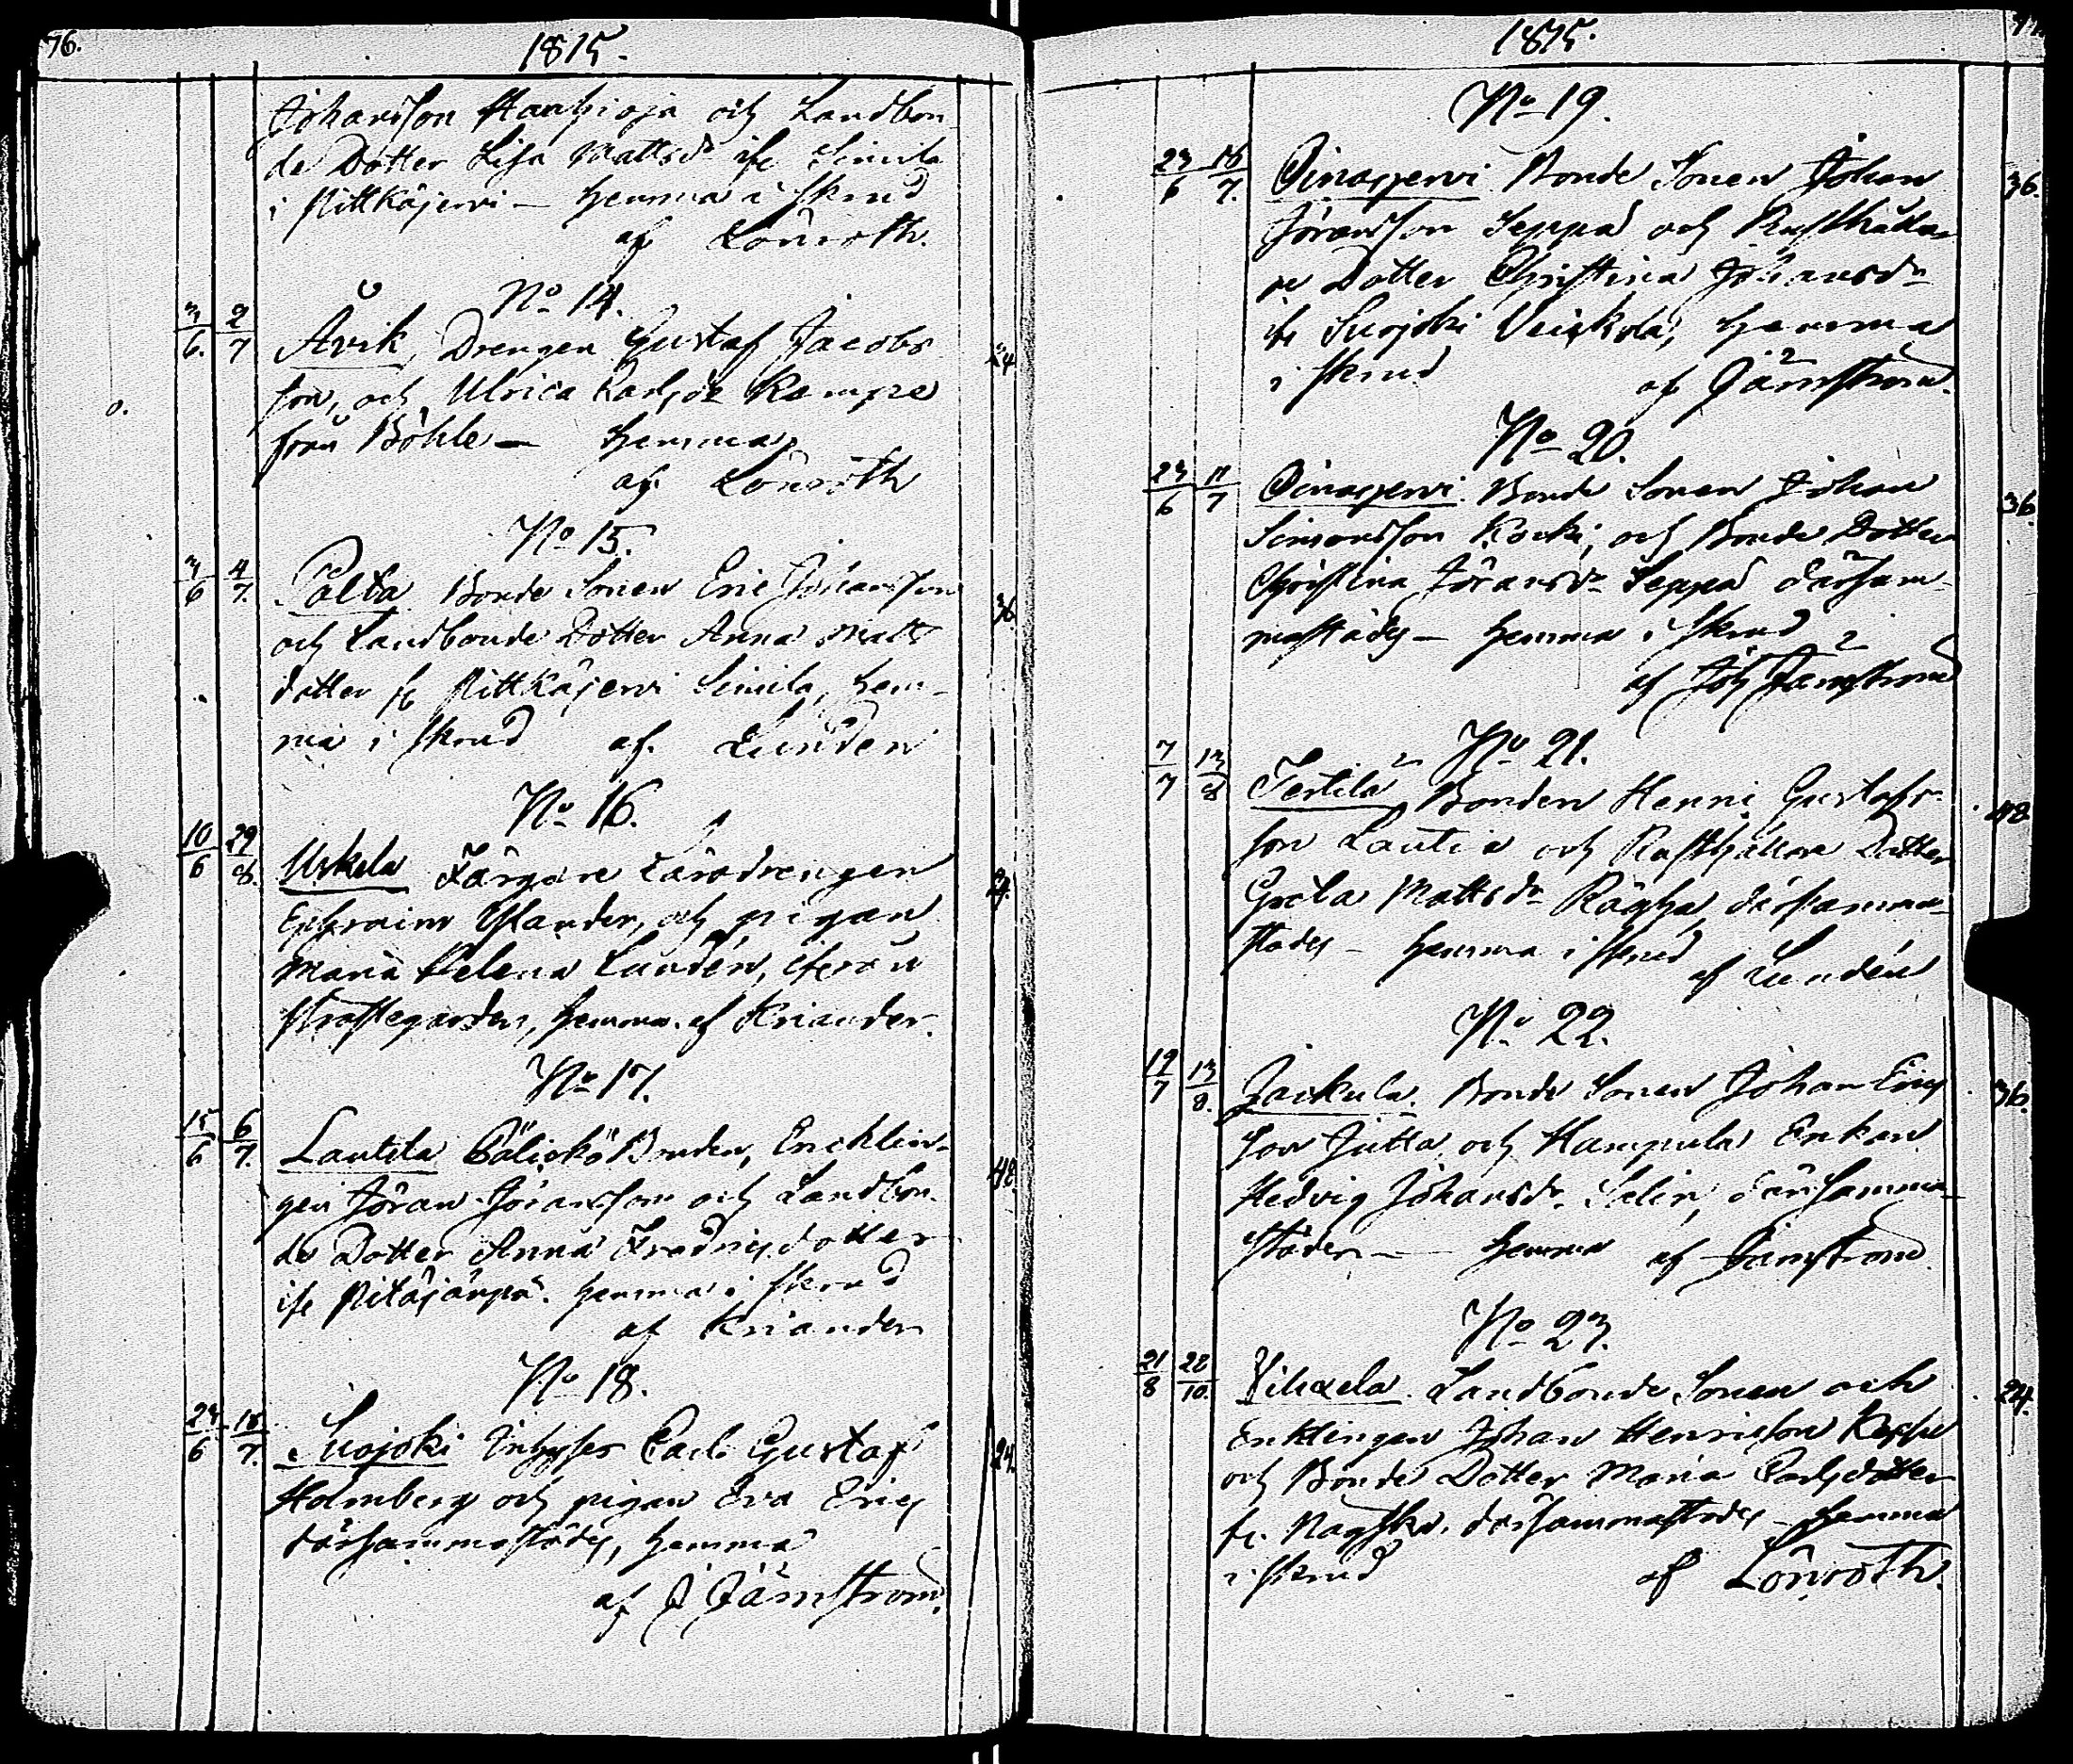 76.
1815.
Johansson Hanhioja och Landbon-
de Dotter Lisa Mattsdr ifr Simila
i Pittkäjervi - hemma i skrud
af Lönroth.
No 14.
3/6. 2/7 Åvik, Drengen Gustaf Jacobs 24
son, och Ulrica Carlsdr Kempe
från Böhle - hemma,
af Lönroth
No 15.
3/6 4/7. Palta Bonde Sonen Eric Johansson 36
och Landbonde Dotter Anna Matts
dotter fr Pittkäjervi Simila, hem-
ma i skrud af Lunden
No 16.
10/6 29/8. Urkela Färgare Lärodrengen 24.
Ephraim Ylander, och pigan
Maria Helena Lundén, ifrån
Prostegården, hemma af Kriander.
No 17.
15/6 6/7. Lautela Päliskö Bonden, Encklin- 48.
gen Jöran Jöransson och Landbon-
de Dotter Anna Fredricsdotter
ifr Pitkäjärpä. hemma i skrud
af Kriander
No 18.
23/6 18/7. Suojoki Inhyses Carl Gustaf 24.
Holmberg och pigan Eva Erics
därsammastädes, hemma
af J Jämstrom.
1815.
No 19.
23/6 16/7. Oinasjervi Bonde Sonen Johan 36.
Jöransson Seppä och Rusthålla-
re Dotter Christina Johansdr
ifr Suojoki Veiskola, hemma
i skrud af Jämstrom.
No 20.
23/6 11/7 Oinasjervi. Bonde Sonen Johan 36.
Simonsson Kocki, och Bonde Dotter
Christina Jöransdr Seppä därsam-
mastädes - hemma i skrud
af Joh Jämstrom
No 21.
7/7 13/8 Tertilä Bonden Henric Gustafs- 48
son Lautia och Rusthållare Dotter
Greta Mattsdr därsamma-
städes - hemma i skrud
af Lundén
No 22.
19/7 13/8. Jackula. Bonde Sonen Johan Erics 36.
son Jutta och Hampula Enkan
Hedvig Johansdr. Selin, därsamma-
städes - hemma af Jämstrom
No 23.
21/8 28/10. Vihxela. Landbonde Sonen och 24.
Enklingen Johan Henricsson
och Bonde Dotter Maria Carlsdotter
fr. därsammastädes - hemma
i skrud af Lönroth.